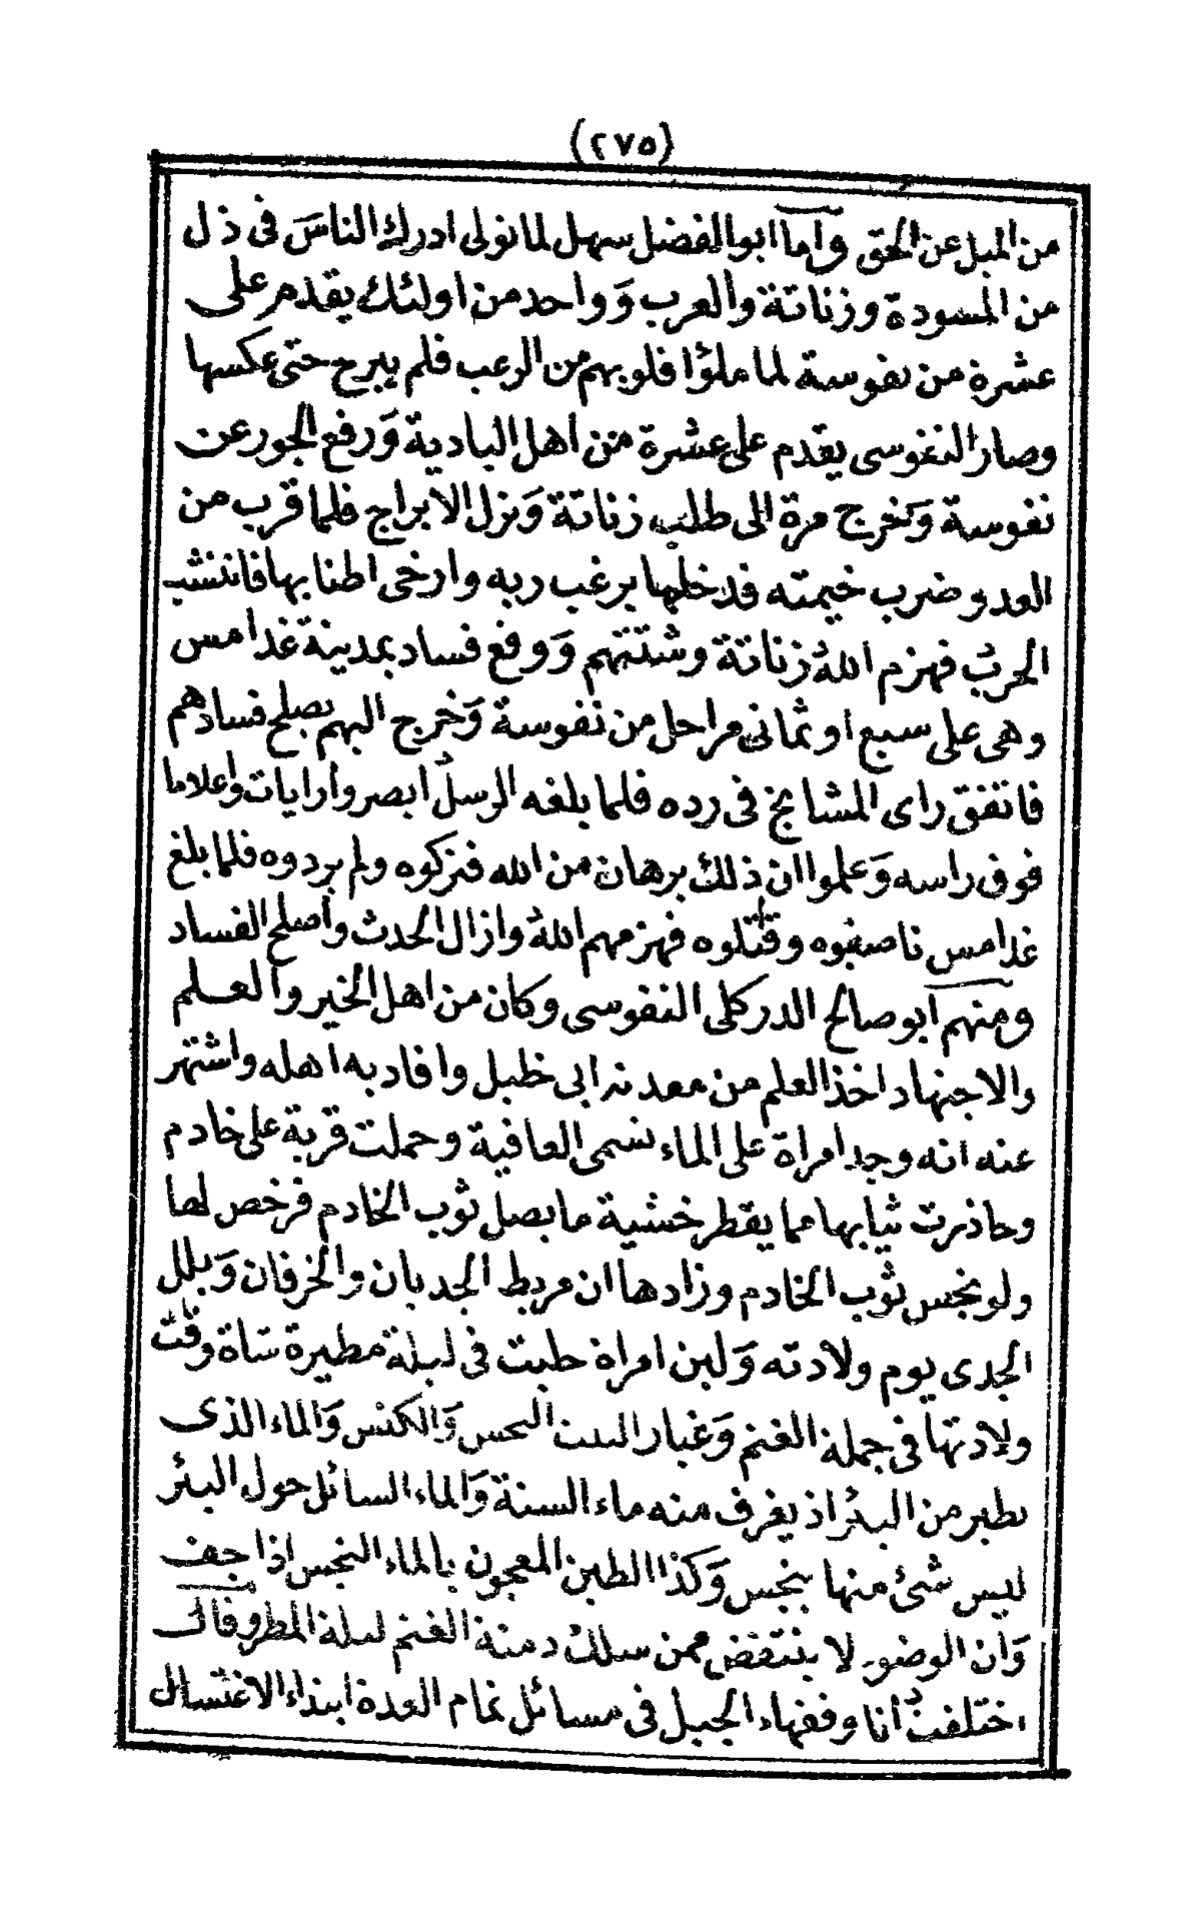 (٢٧٥)
من الميل عن الحق وأما ابو الفضل سهل لما تولى ادرك الناسَ فى ذل
من المسودة وزناتة والعرب وَواحد من اولئك يقدم على
عشرة من نفوسة لما ملؤا قلوبهم من الرعب فلم يبرح حتى عكسها
وصار النفوسى يقدم على عشرة من أهل البادية وَرفع الجور عن
نفوسة وَخرج مرة الى طلب زناتة وَنزل الابراج فلما قرب من
العدو ضرب خيمته فدخلها يرغب ربه وارخى اطنابها فانتشب
الحربُ فهزم اللهُ زناتة وشتتهم وَوقع فساد بمدينة غدامس
وهى على سبع او ثمانى مراحل من نفوسة وَخرج اليهم يصلح فسادهم
فاتفق راى المشايخ فى رده فلما بلغه الرسلُ ابصروا رايات واعلاما
فوق راسه وَعلموا ان ذلك برهان من الله فتركوه ولم يردوه فلما بلغ
غدامس ناصفوه وقاتلوه فهزمهم اللهُ وازال الحدث وأصلح الفساد
ومنهم أبو صالح الدركلى النفوسى وكان من اهل الخير والعلم
والاجتهاد اخذ العلم من معدنه ابى خليل وافاد به اهله واشتهر
عنه انه وجد امراة على الماء تسمى العافية وحملت قربة على خادم
وحاذرت ثيابها مما يقطر خشية ما يصل ثوب الخادم فرخص لها
ولو نجس ثوب الخادم وزادها ان مربط الجديان والخرفان وَبلل
الجدى يوم ولادته وَلبن امراة حلبت فى ليلة مطيرة شاة وقت
ولادتها فى جملة الغنم وَغبار البيت النجس وَالكنس وَالماء الذى
يطير من البئر اذ يغرف منه ماء السنة وَالماء السائل حول البئر
ليس شئ منها بنجس وَكذا الطين المعجون بالماء النجس اذا جف
وَان الوضوء لا ينتقض ممن سلك دمنة الغنم ليلة المطر وقال
اختلفتُ أنا وفقهاء الجبل فى مسائل تمام العدة ابتداء الاغتسال